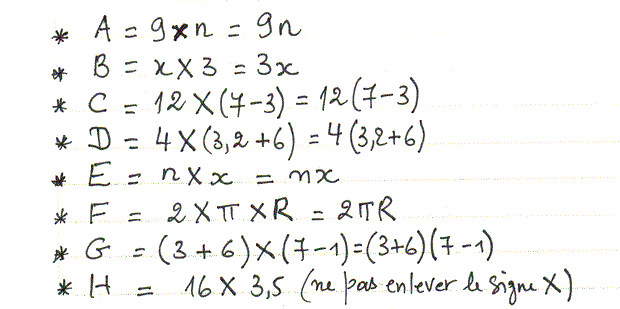 * A = 9 × n = 9n
* B = x × 3 = 3x
* C = 12 × (7 - 3) = 12(7 - 3)
* D = 4 × (3,2 + 6) = 4(3,2 + 6)
* E = n × x = nx
* F = 2 × π × R = 2πR
* G = (3 + 6) × (7 - 1) = (3 + 6)(7 - 1)
* H = 16 × 3,5 (ne pas enlever le signe ×)